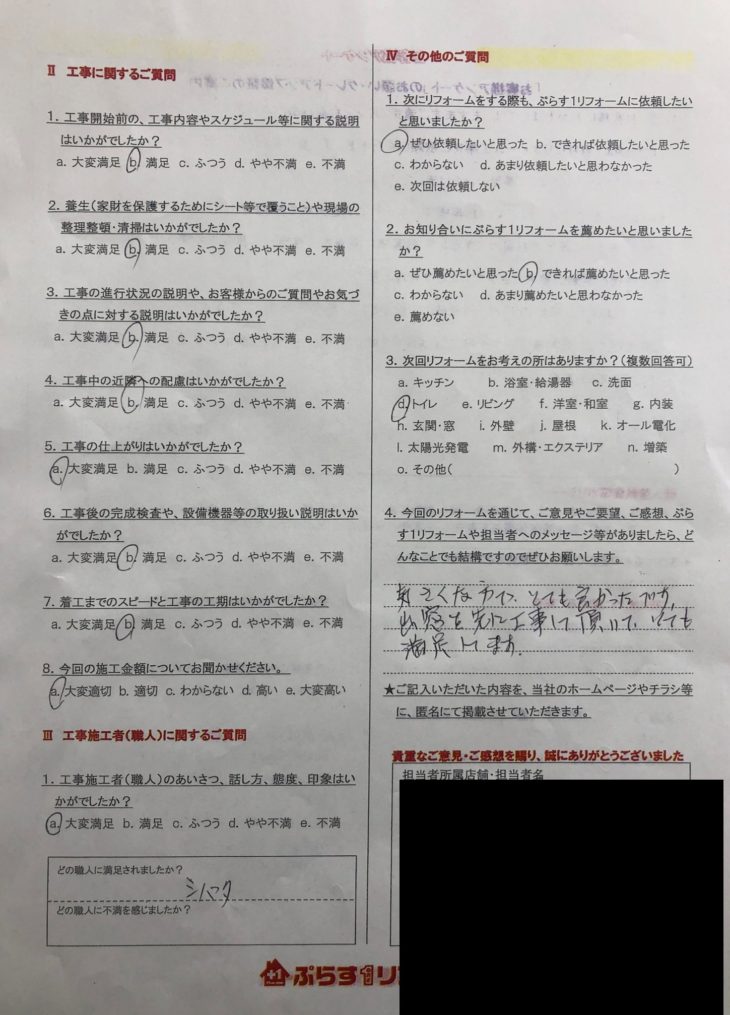 Ⅱ 工事に関するご質問
1. 工事開始前の、工事内容やスケジュール等に関する説明
はいかがでしたか？
a. 大変満足 b. 満足 c. ふつう d. やや不満 e. 不満
2. 養生（家財を保護するためにシート等で覆うこと）や現場の
整理整頓・清掃はいかがでしたか？
a. 大変満足 b. 満足 c. ふつう d. やや不満 e. 不満
3. 工事の進行状況の説明や、お客様からのご質問やお気づ
きの点に対する説明はいかがでしたか？
a. 大変満足 b. 満足 c. ふつう d. やや不満 e. 不満
4. 工事中の近隣への配慮はいかがでしたか？
a. 大変満足 b. 満足 c. ふつう d. やや不満 e. 不満
5. 工事の仕上がりはいかがでしたか？
a. 大変満足 b. 満足 c. ふつう d. やや不満 e. 不満
6. 工事後の完成検査や、設備機器等の取り扱い説明はいか
がでしたか？
a. 大変満足 b. 満足 c. ふつう d. やや不満 e. 不満
7. 着工までのスピードと工事の工期はいかがでしたか？
a. 大変満足 b. 満足 c. ふつう d. やや不満 e. 不満
8. 今回の施工金額についてお聞かせください。
a. 大変適切 b. 適切 c. わからない d. 高い e. 大変高い
Ⅲ 工事施工者（職人）に関するご質問
1. 工事施工者（職人）のあいさつ、話し方、態度、印象はい
かがでしたか？
a. 大変満足 b. 満足 c. ふつう d. やや不満 e. 不満
どの職人に満足されましたか？
シバタ
どの職人に不満を感じましたか？
Ⅳ その他のご質問
1. 次にリフォームをする際も、ぷらす1リフォームに依頼したい
と思いましたか？
a. ぜひ依頼したいと思った b. できれば依頼したいと思った
c. わからない d. あまり依頼したいと思わなかった
e. 次回は依頼しない
2. お知り合いにぷらす1リフォームを薦めたいと思いました
か？
a. ぜひ薦めたいと思った b. できれば薦めたいと思った
c. わからない d. あまり薦めたいと思わなかった
e. 薦めない
3. 次回リフォームをお考えの所はありますか？（複数回答可）
a. キッチン b. 浴室・給湯器 c. 洗面
d. トイレ e. リビング f. 洋室・和室 g. 内装
h. 玄関・窓 i. 外壁 j. 屋根 k. オール電化
l. 太陽光発電 m. 外構・エクステリア n. 増築
o. その他（ ）
4. 今回のリフォームを通じて、ご意見やご要望、ご感想、ぷら
す1リフォームや担当者へのメッセージ等がありましたら、ど
んなことでも結構ですのでぜひお願いします。
気さくな方で、とても良かったです。
出窓を先に工事して頂いて、とても
満足してます。
★ご記入いただいた内容を、当社のホームページやチラシ等
に、匿名にて掲載させていただきます。
貴重なご意見・ご感想を賜り、誠にありがとうございました
担当者所属店舗・担当者名
+1 ぷらす1リ